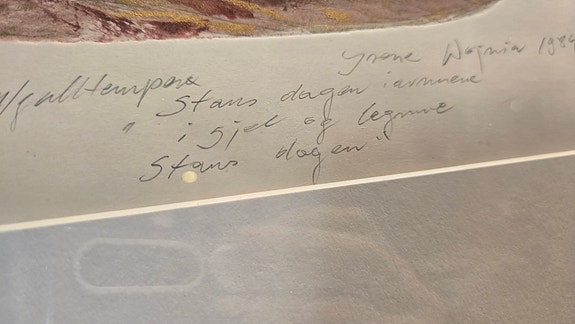 Yrene Wagnia 198
/galltempera
" Stans dagen i armene
i sjel og legeme
Stans dagen "